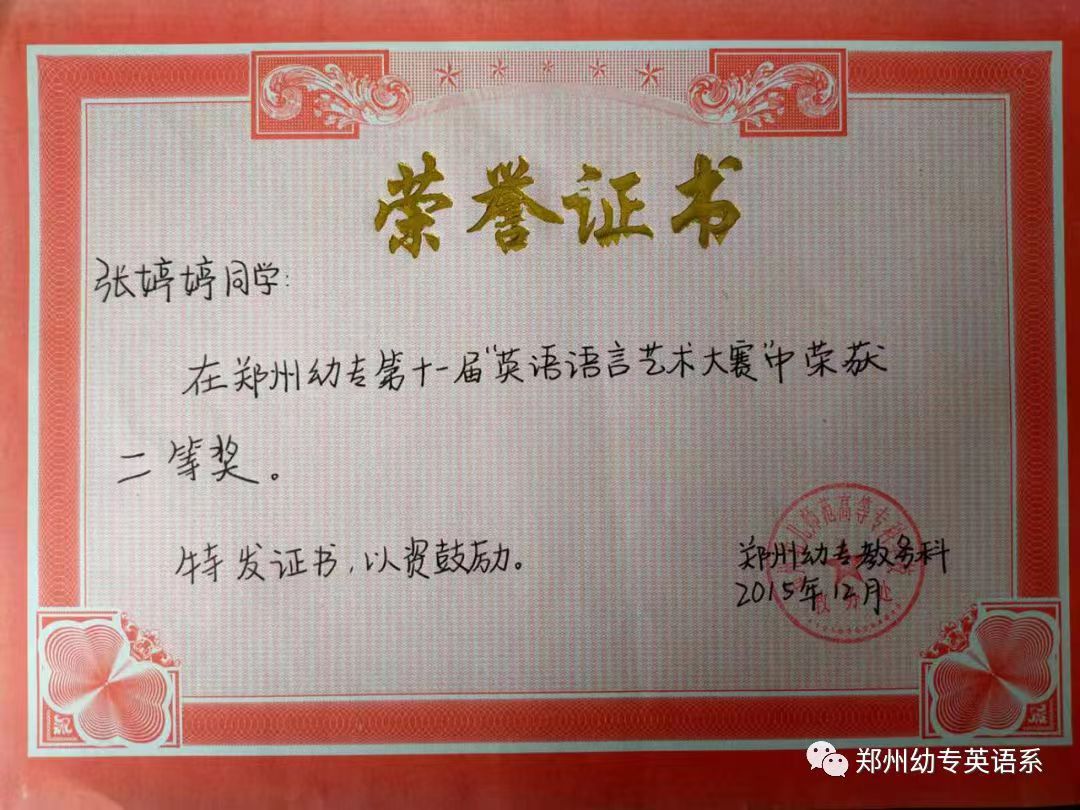 荣誉证书
张婷婷同学:
在郑州幼专第十一届“英语语言艺术大赛”中荣获
二等奖。
特发证书,以资鼓励。
郑州幼专教务科
2015年12月
郑州幼专英语系